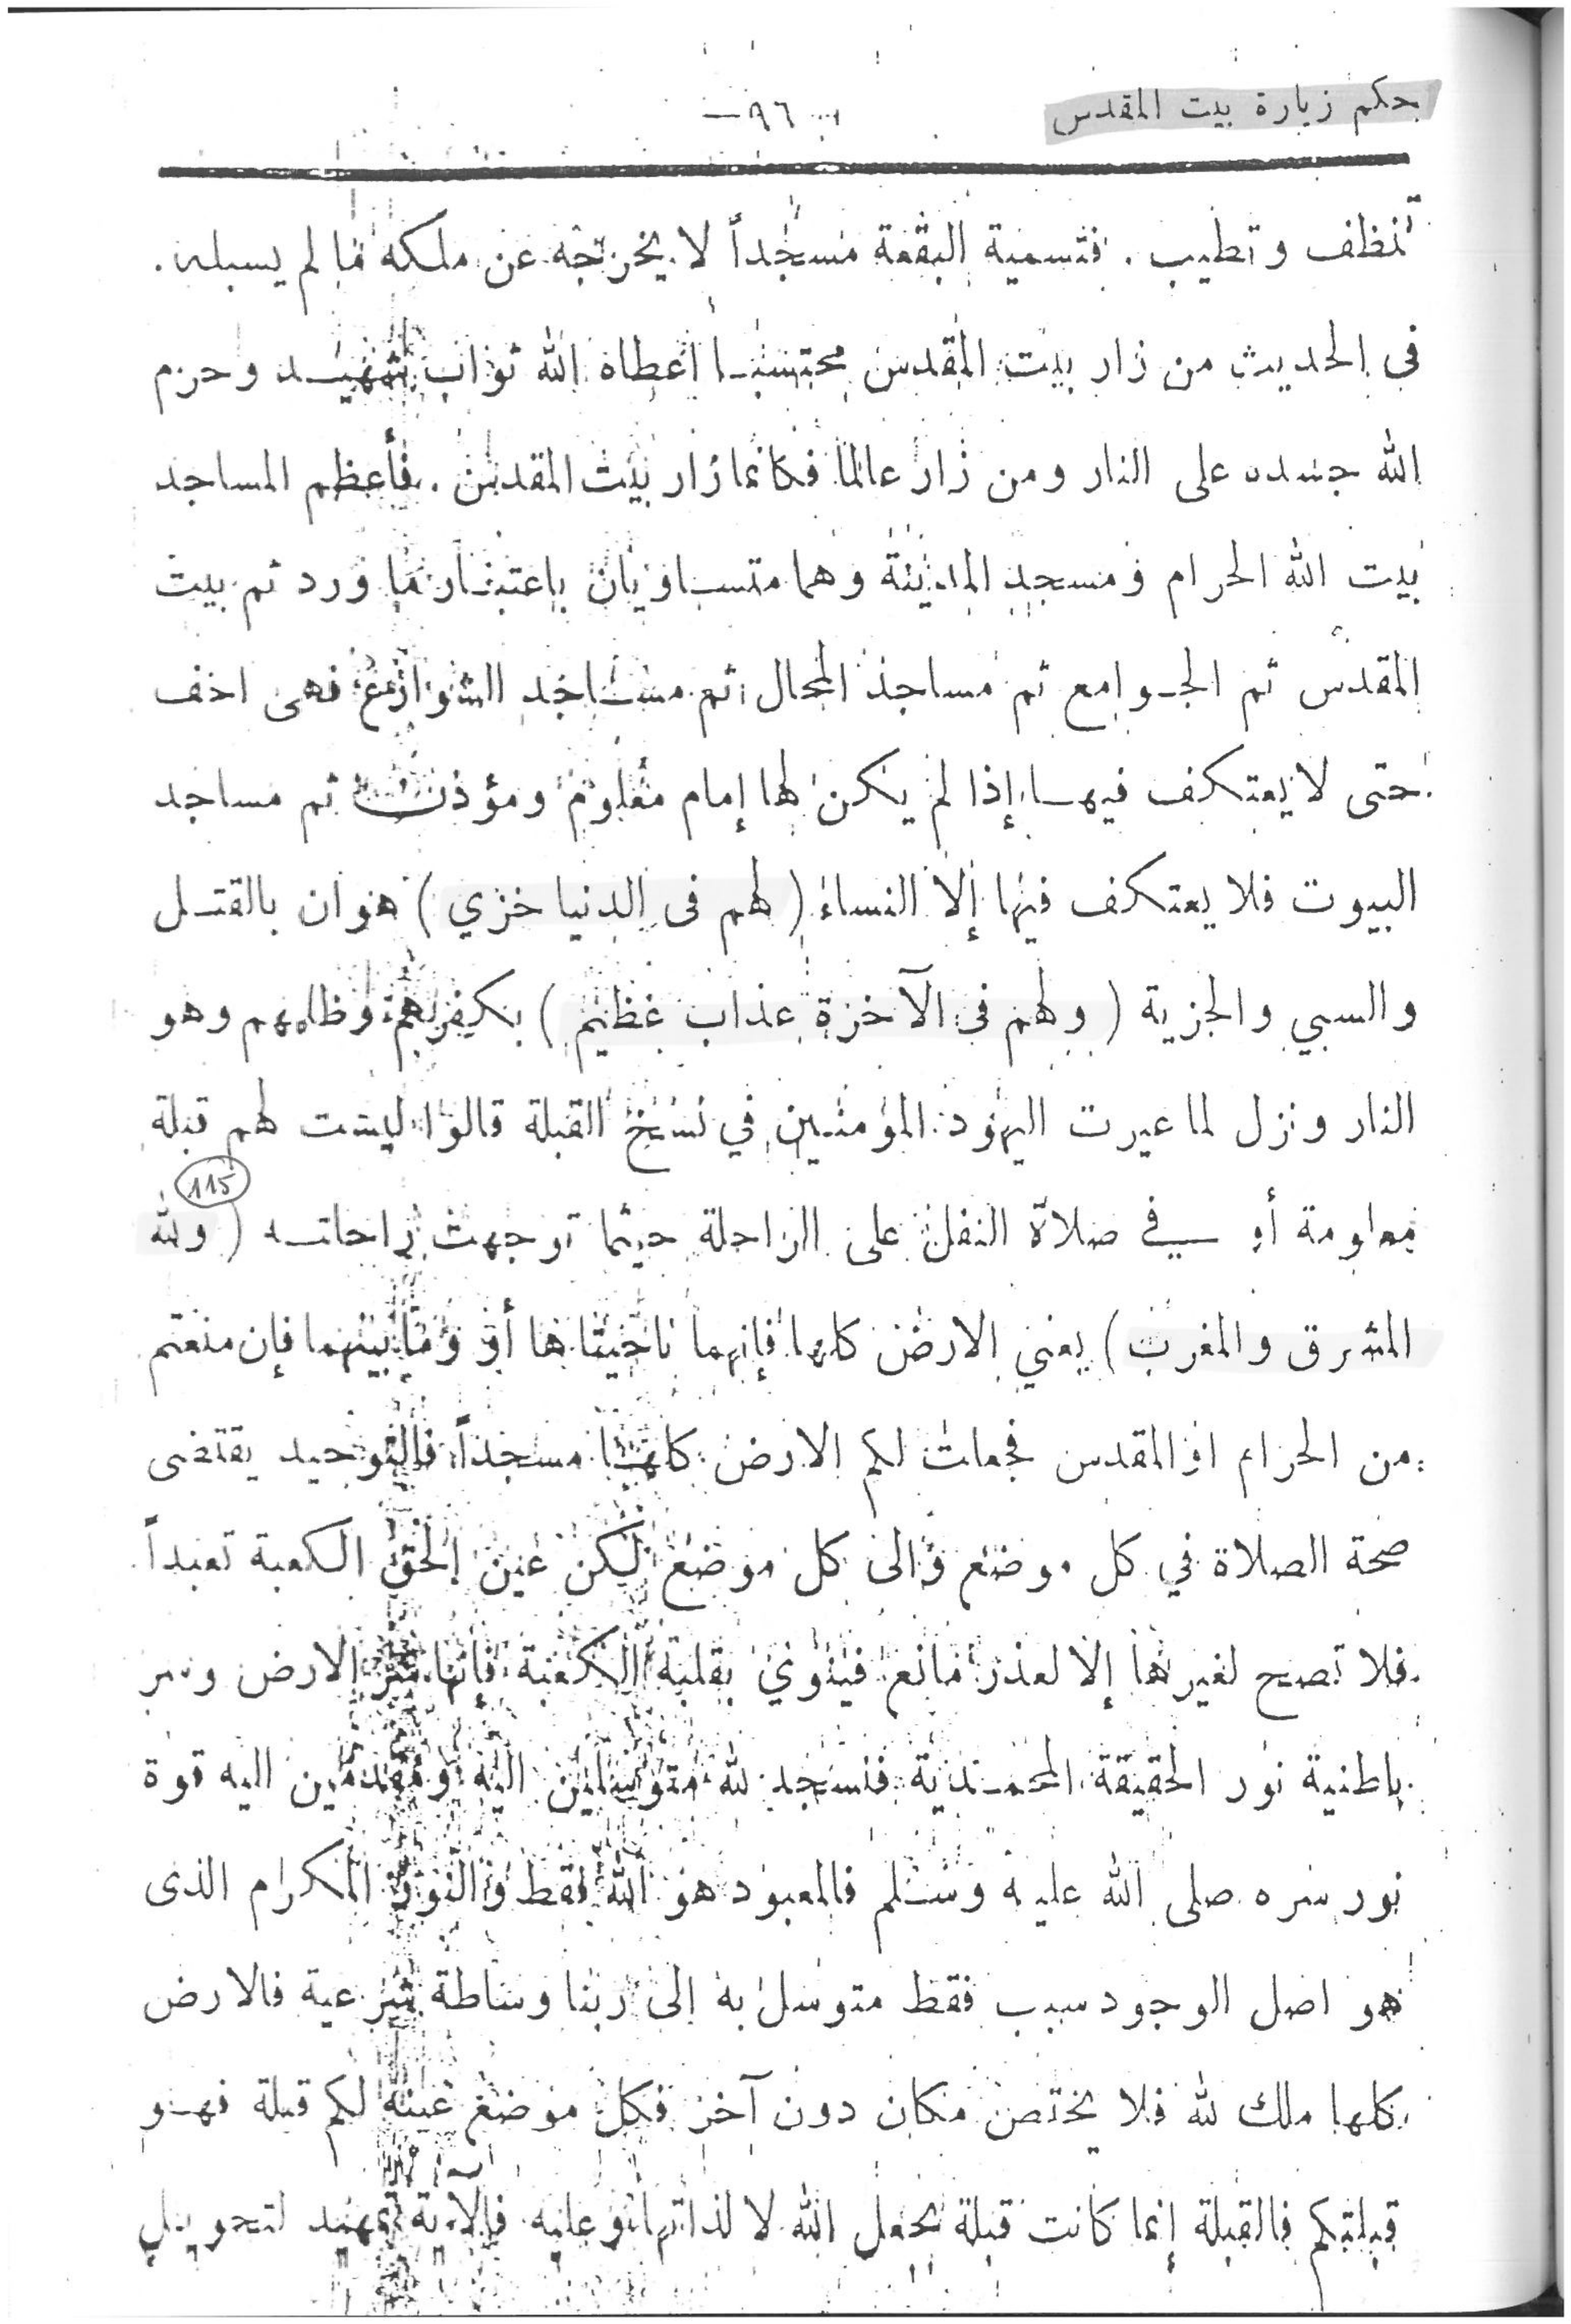 حكم زيارة بيت المقدس
— ٩٦ —
تنظف وتطيب . فتسمية البقعة مسجداً لا يخرجه عن ملكه ما لم يسبله .
فى الحديث من زار بيت المقدس محتسبا أعطاه الله ثواب شهيد وحرم
الله جسده على النار ومن زار عالما فكانما زار بيت المقدس . فأعظم المساجد
بيت الله الحرام ومسجد المدينة وهما متساويان باعتبار ما ورد ثم بيت
المقدس ثم الجوامع ثم مساجد المحال ثم مساجد الشوارع فهى اخف
حتى لا يعتكف فيها إذا لم يكن لها إمام معلوم ومؤذن ثم مساجد
البيوت فلا يعتكف فيها إلا النساء ( لهم فى الدنيا خزي ) هوان بالقتل
والسبي والجزية ( ولهم فى الآخرة عذاب عظيم ) بكفرهم وظلمهم وهو
النار ونزل لما عيرت اليهود المؤمنين في نسخ القبلة قالوا ليست لهم قبلة
115
معلومة أو في صلاة النفل على الراحلة حيثما توجهت راحلته ( ولله
المشرق والمغرب ) يعني الارض كلها فإنهما ناحيتاها أو وما بينهما فإن منعتم
من الحرام او المقدس فجعلت لكم الارض كلها مسجداً فالتوحيد يقتضى
صحة الصلاة في كل موضع والى كل موضع لكن عين الحق الكعبة تعبداً
فلا تصح لغيرها إلا لعذر مانع فينوي بقلبه الكعبة فإنها سر الارض وسر
باطنية نور الحقيقة المحمدية فنسجد لله متوسلين اليه ومقدمين اليه قوة
نور سره صلى الله عليه وسلم فالمعبود هو الله فقط والنور المكرام الذى
هو اصل الوجود سبب فقط متوسل به إلى ربنا وساطة شرعية فالارض
كلها ملك لله فلا يختص مكان دون آخر فكل موضع عينه لكم قبلة فهو
قبلتكم فالقبلة إنما كانت قبلة بجعل الله لا لذاتها وعليه فالآية تمهيد لتحويل